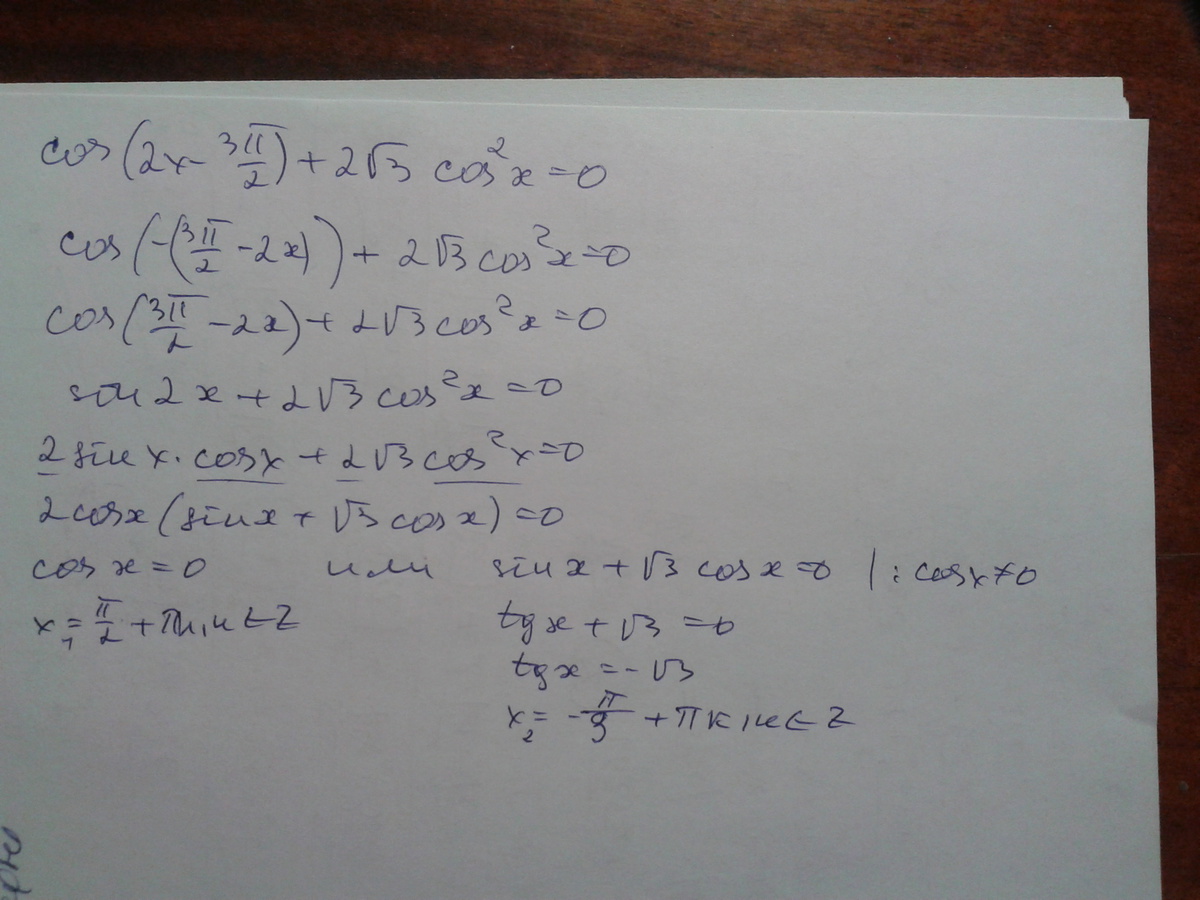 cos(2x - 3π/2) + 2√3 cos²x = 0
cos(-(3π/2 - 2x)) + 2√3 cos²x = 0
cos(3π/2 - 2x) + 2√3 cos²x = 0
sin 2x + 2√3 cos²x = 0
2 sin x · cos x + 2√3 cos²x = 0
2 cos x (sin x + √3 cos x) = 0
cos x = 0 или sin x + √3 cos x = 0 | : cos x ≠ 0
x₁ = π/2 + πn, n ∈ Z tg x + √3 = 0
tg x = -√3
x₂ = -π/3 + πк, к ∈ Z